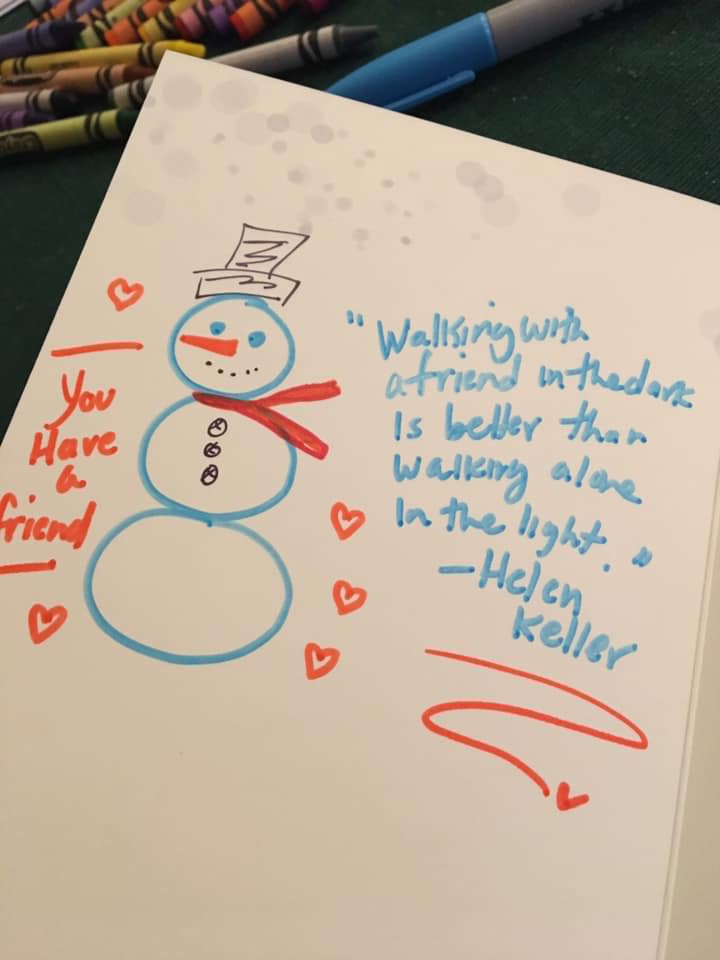 You
Have
a
friend
"Walking with
a friend in the dark
Is better than
walking alone
In the light."
—Helen
Keller